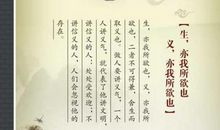 【生，亦我所欲也
义，亦我所欲也】
生，亦我所欲也，义，亦我
所欲也，二者不可得兼，舍生而
取义也。做人要讲义气，一个
人讲义气，就代表了他讲文明，
讲信义的人，处处受欢迎；不
讲信义的人，人们会忽视他的
存在。